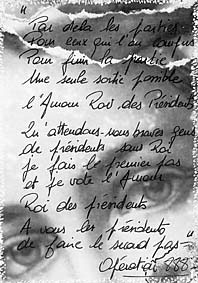 "Par delà les parties
Pour ceux qui l'on compris
Pour finir la partie
Une seule sortie possible
l'Amour Roi des Présidents
Qu'attendons-nous braves gens
de présidents sans Roi
je fais le premier pas
et je vote l'Amour
Roi des présidents
A vous les présidents
de faire le second pas"
888